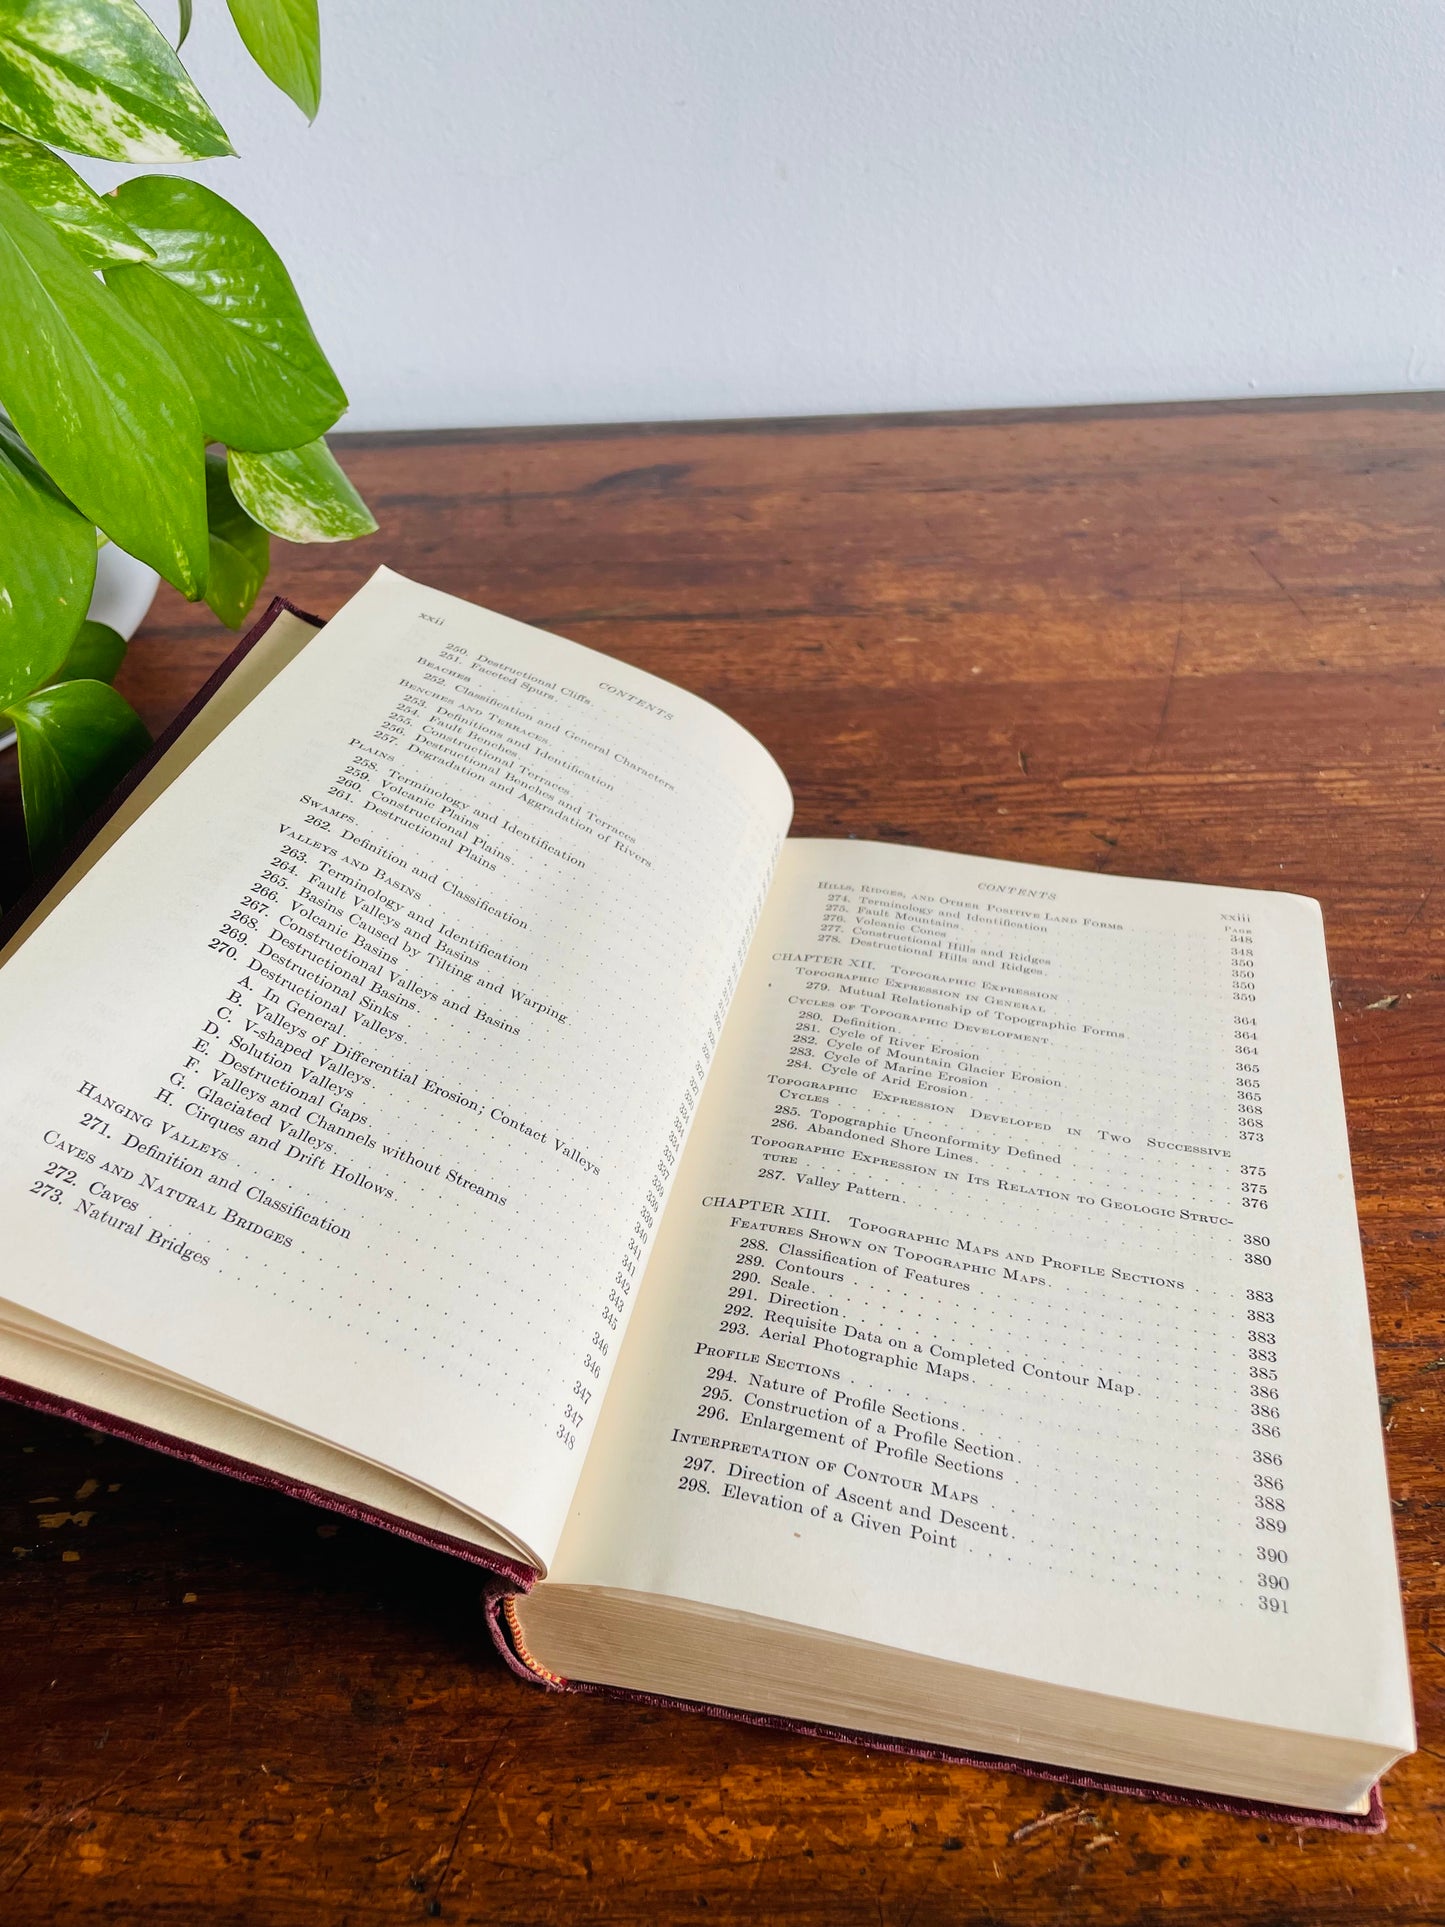 xxii
CONTENTS
250. Destructional Cliffs
251. Faceted Spurs
BEACHES
252. Classification and General Characters
BENCHES AND TERRACES
253. Definitions and Identification
254. Fault Benches
255. Constructional Terraces
256. Destructional Benches and Terraces
257. Degradation and Aggradation of Rivers
PLAINS
258. Terminology and Identification
259. Volcanic Plains
260. Constructional Plains
261. Destructional Plains
SWAMPS
262. Definition and Classification
VALLEYS AND BASINS
263. Terminology and Identification
264. Fault Valleys and Basins
265. Basins Caused by Tilting and Warping
266. Volcanic Basins
267. Constructional Valleys and Basins
268. Destructional Basins 334
269. Destructional Sinks 337
270. Destructional Valleys 337
A. In General 339
B. Valleys of Differential Erosion; Contact Valleys 339
C. V-shaped Valleys 340
D. Solution Valleys 341
E. Destructional Gaps 341
F. Valleys and Channels without Streams 342
G. Glaciated Valleys 343
H. Cirques and Drift Hollows 345
HANGING VALLEYS 346
271. Definition and Classification 346
CAVES AND NATURAL BRIDGES 347
272. Caves 347
273. Natural Bridges 348
CONTENTS
xxiii
PAGE
HILLS, RIDGES, AND OTHER POSITIVE LAND FORMS 348
274. Terminology and Identification 348
275. Fault Mountains 350
276. Volcanic Cones 350
277. Constructional Hills and Ridges 350
278. Destructional Hills and Ridges 359
CHAPTER XII. TOPOGRAPHIC EXPRESSION 364
TOPOGRAPHIC EXPRESSION IN GENERAL 364
279. Mutual Relationship of Topographic Forms 364
CYCLES OF TOPOGRAPHIC DEVELOPMENT 365
280. Definition 365
281. Cycle of River Erosion 365
282. Cycle of Mountain Glacier Erosion 368
283. Cycle of Marine Erosion 368
284. Cycle of Arid Erosion 373
TOPOGRAPHIC EXPRESSION DEVELOPED IN TWO SUCCESSIVE
CYCLES 375
285. Topographic Unconformity Defined 375
286. Abandoned Shore Lines 376
TOPOGRAPHIC EXPRESSION IN ITS RELATION TO GEOLOGIC STRUC-
TURE 380
287. Valley Pattern 380
CHAPTER XIII. TOPOGRAPHIC MAPS AND PROFILE SECTIONS 383
FEATURES SHOWN ON TOPOGRAPHIC MAPS 383
288. Classification of Features 383
289. Contours 383
290. Scale 385
291. Direction 386
292. Requisite Data on a Completed Contour Map 386
293. Aerial Photographic Maps 386
PROFILE SECTIONS 386
294. Nature of Profile Sections 386
295. Construction of a Profile Section 388
296. Enlargement of Profile Sections 389
INTERPRETATION OF CONTOUR MAPS 390
297. Direction of Ascent and Descent 390
298. Elevation of a Given Point 391